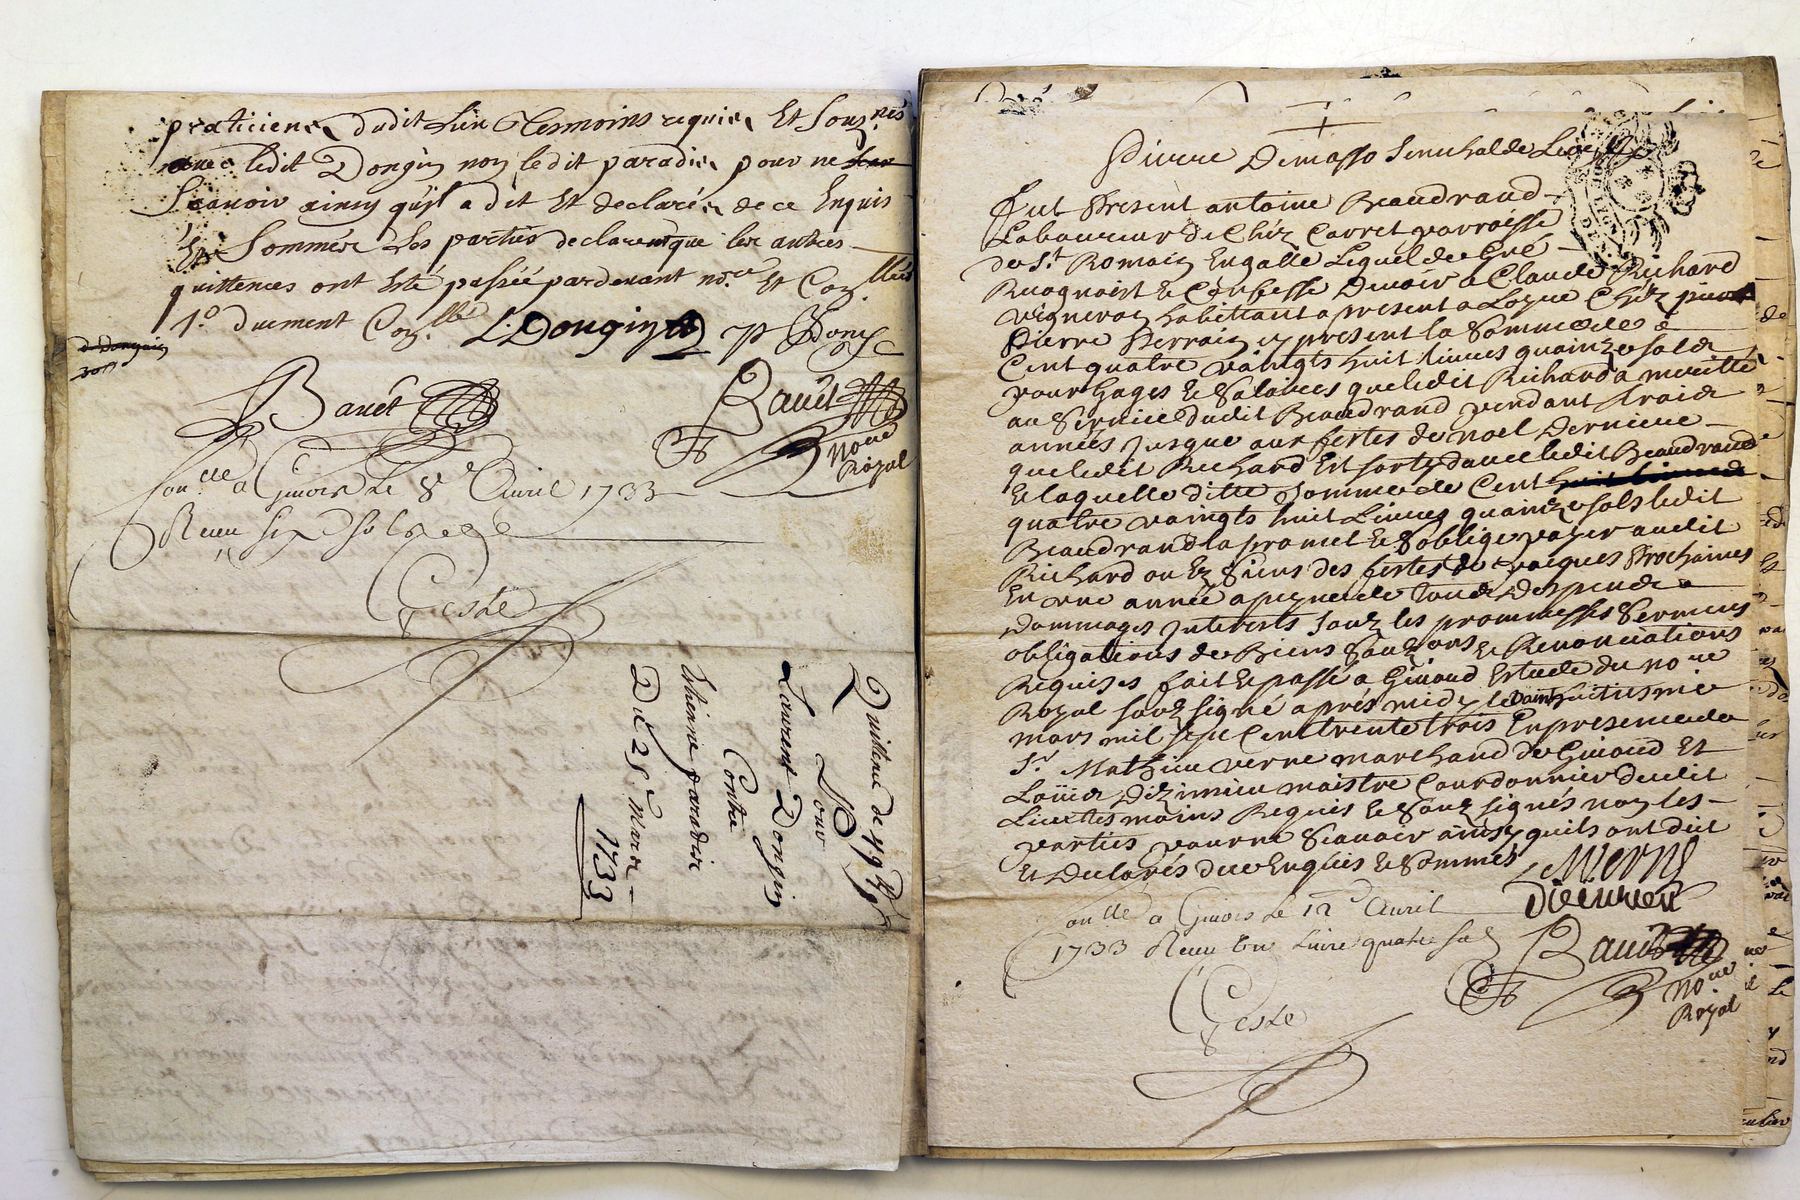 praticiens dudit Lieu Tesmoins requis Et Souz.nés
avec ledit Dongin non ledit paradis pour ne
Scauoir ainsy qu'jl a dit Et declaré de ce Enquis
Et Sommés Les parties declarent que les autres
quittences ont Esté passée pardeuant no.re Et Con.llés
1.º duement Con.llé L. Dongin
Bauët Bauët
no.re
Royal
con.llé a Giuors Le 8.e Auril 1733
Receu six sols
Geste
Quittence de 99 lt
Pour
Laurent Dongin
Contre
Ethienne paradis
Du 25.e Mars
1733
Pierre Demasso Senechal de Lion
Fut Present antoine Beaudrand
Laboureur de Chéz Couret parroisse
de S.t Romain Engalle Lequel de Gré
Recognoist Et Confesse Deuoir a Claude Richard
vigneron habittant a present a Chéz
Pierre Perrain cy present la Somme de
Cent quatre vaingts huit Liures quainze sols
pour Gages Et Salaires que ledit Richard a merité
au Seruice dudit Beaudrand pendant trois
années Jusque aux festes de noel Derniere
que ledit Richard Est sorty dauec ledit Beaudrand
Et laquelle ditte Somme de Cent
quatre vaingts huit Liures quainze sols ledit
Beaudrand a promet Et S'oblige payer audit
Richard ou Ez Siens des festes de pacques Prochaines
En vne année a peyne de tous Despends
Dommages Jnterests Souz les prommesses Sermens
obligations de Biens Souz.ons Et Renonciations
Requises fait Et passé a Giuaud Estude du no.re
Royal souz signé aprés midy le vaint huitiesme
mars mil sept Cent trente trois En presence de
S.r Mathieu verne marchand de Giuaud Et
Loüis Dizimieu maistre Courdonnier dudit
Lieu tesmoins Requis Et Souz signés non les
parties pour ne Scauoir ainsy quils ont dit
Et Declarés de ce Enquis Et Sommés
MVerne
Dizimieu
con.llé a Giuors Le 12.e Auril
1733 Receu Une Liure quatre sols
Bauët
no.re
Royal
Geste